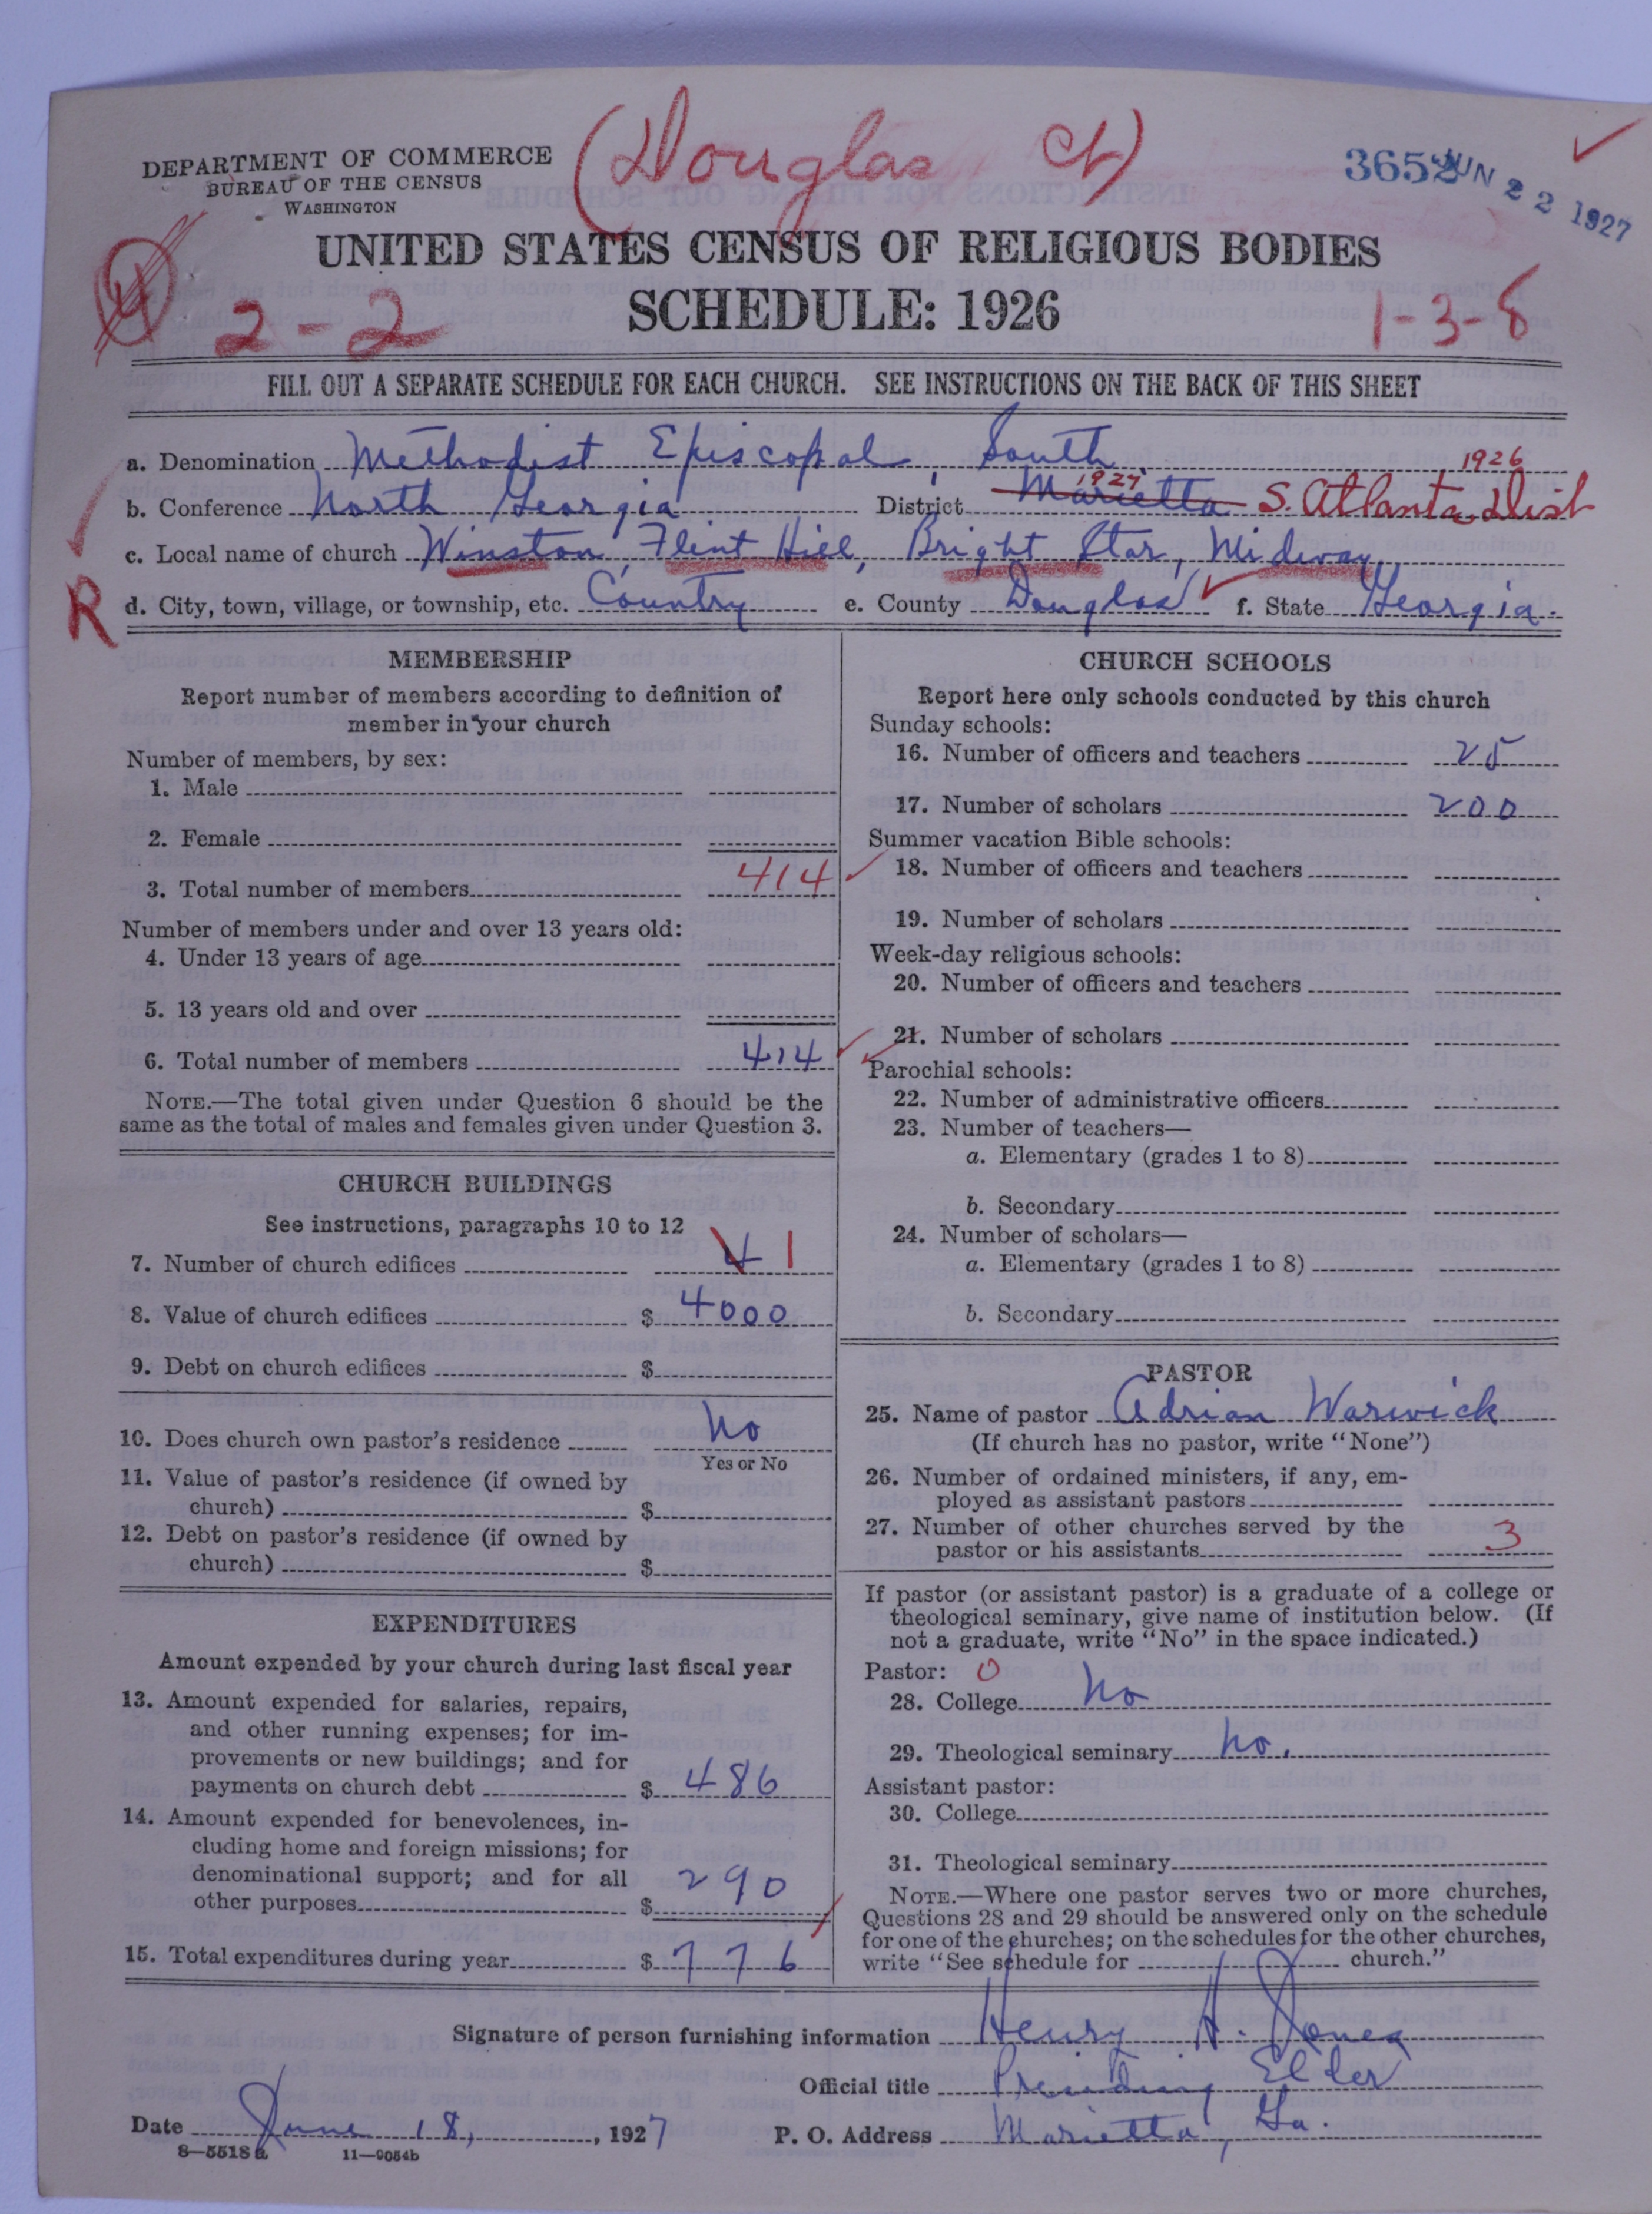 (Douglas Ct)
DEPARTMENT OF COMMERCE
BUREAU OF THE CENSUS
WASHINGTON
3652
JUN 22 1927
UNITED STATES CENSUS OF RELIGIOUS BODIES
4
2-2
SCHEDULE: 1926
1-3-8
FILL OUT A SEPARATE SCHEDULE FOR EACH CHURCH. SEE INSTRUCTIONS ON THE BACK OF THIS SHEET
a. Denomination Methodist Episcopal, South
b. Conference North Georgia District Marietta 1927 S. Atlanta Dist 1926
c. Local name of church Winston, Flint Hill, Bright Star, Midway
R
d. City, town, village, or township, etc. Country e. County Douglas f. State Georgia.
MEMBERSHIP
Report number of members according to definition of
member in your church
Number of members, by sex:
1. Male
2. Female
3. Total number of members 414
Number of members under and over 13 years old:
4. Under 13 years of age
5. 13 years old and over
6. Total number of members 414
NOTE.—The total given under Question 6 should be the
same as the total of males and females given under Question 3.
CHURCH BUILDINGS
See instructions, paragraphs 10 to 12
7. Number of church edifices 4 1
8. Value of church edifices $ 4000
9. Debt on church edifices $
10. Does church own pastor's residence No
Yes or No
11. Value of pastor's residence (if owned by
church) $
12. Debt on pastor's residence (if owned by
church) $
EXPENDITURES
Amount expended by your church during last fiscal year
13. Amount expended for salaries, repairs,
and other running expenses; for im-
provements or new buildings; and for
payments on church debt $ 486
14. Amount expended for benevolences, in-
cluding home and foreign missions; for
denominational support; and for all
other purposes $ 290
15. Total expenditures during year $ 776
CHURCH SCHOOLS
Report here only schools conducted by this church
Sunday schools:
16. Number of officers and teachers 25
17. Number of scholars 200
Summer vacation Bible schools:
18. Number of officers and teachers
19. Number of scholars
Week-day religious schools:
20. Number of officers and teachers
21. Number of scholars
Parochial schools:
22. Number of administrative officers
23. Number of teachers—
a. Elementary (grades 1 to 8)
b. Secondary
24. Number of scholars—
a. Elementary (grades 1 to 8)
b. Secondary
PASTOR
25. Name of pastor Adrian Warwick
(If church has no pastor, write "None")
26. Number of ordained ministers, if any, em-
ployed as assistant pastors
27. Number of other churches served by the
pastor or his assistants 3
If pastor (or assistant pastor) is a graduate of a college or
theological seminary, give name of institution below. (If
not a graduate, write "No" in the space indicated.)
Pastor: 0
28. College No
29. Theological seminary No.
Assistant pastor:
30. College
31. Theological seminary
NOTE.—Where one pastor serves two or more churches,
Questions 28 and 29 should be answered only on the schedule
for one of the churches; on the schedules for the other churches,
write "See schedule for church."
Signature of person furnishing information Henry H. Jones
Official title Presiding Elder
Date June 18, 1927 P. O. Address Marietta, Ga.
8—5518 a 11—9054b